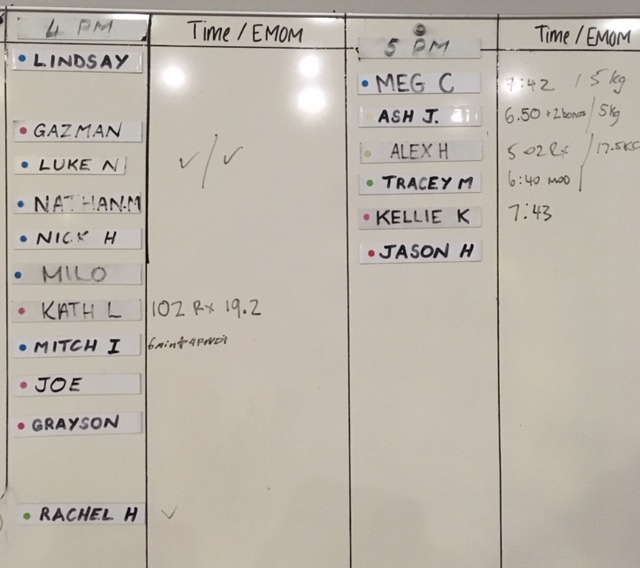 4 PM Time / EMOM
LINDSAY
GAZMAN
LUKE N ✓/✓
NATHAN.M
NICK H
MILO
KATH L 102 Rx 19.2
MITCH I 6min+
JOE
GRAYSON
RACHEL H ✓
5 PM Time / EMOM
MEG C 7:42 / 5kg
ASH J. 6.50 +2bonus / 5kg
ALEX H 5 02 Rx / 17.5KG
TRACEY M 6:40 MOD
KELLIE K 7:43
JASON H